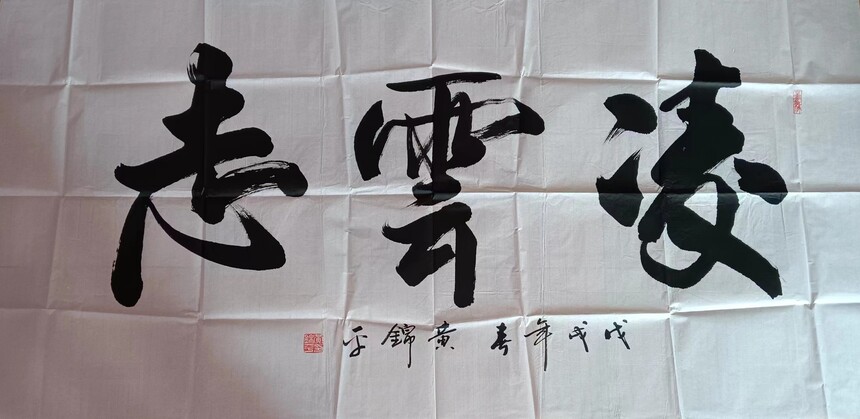 凌雲志
戊戌年春黄錦平